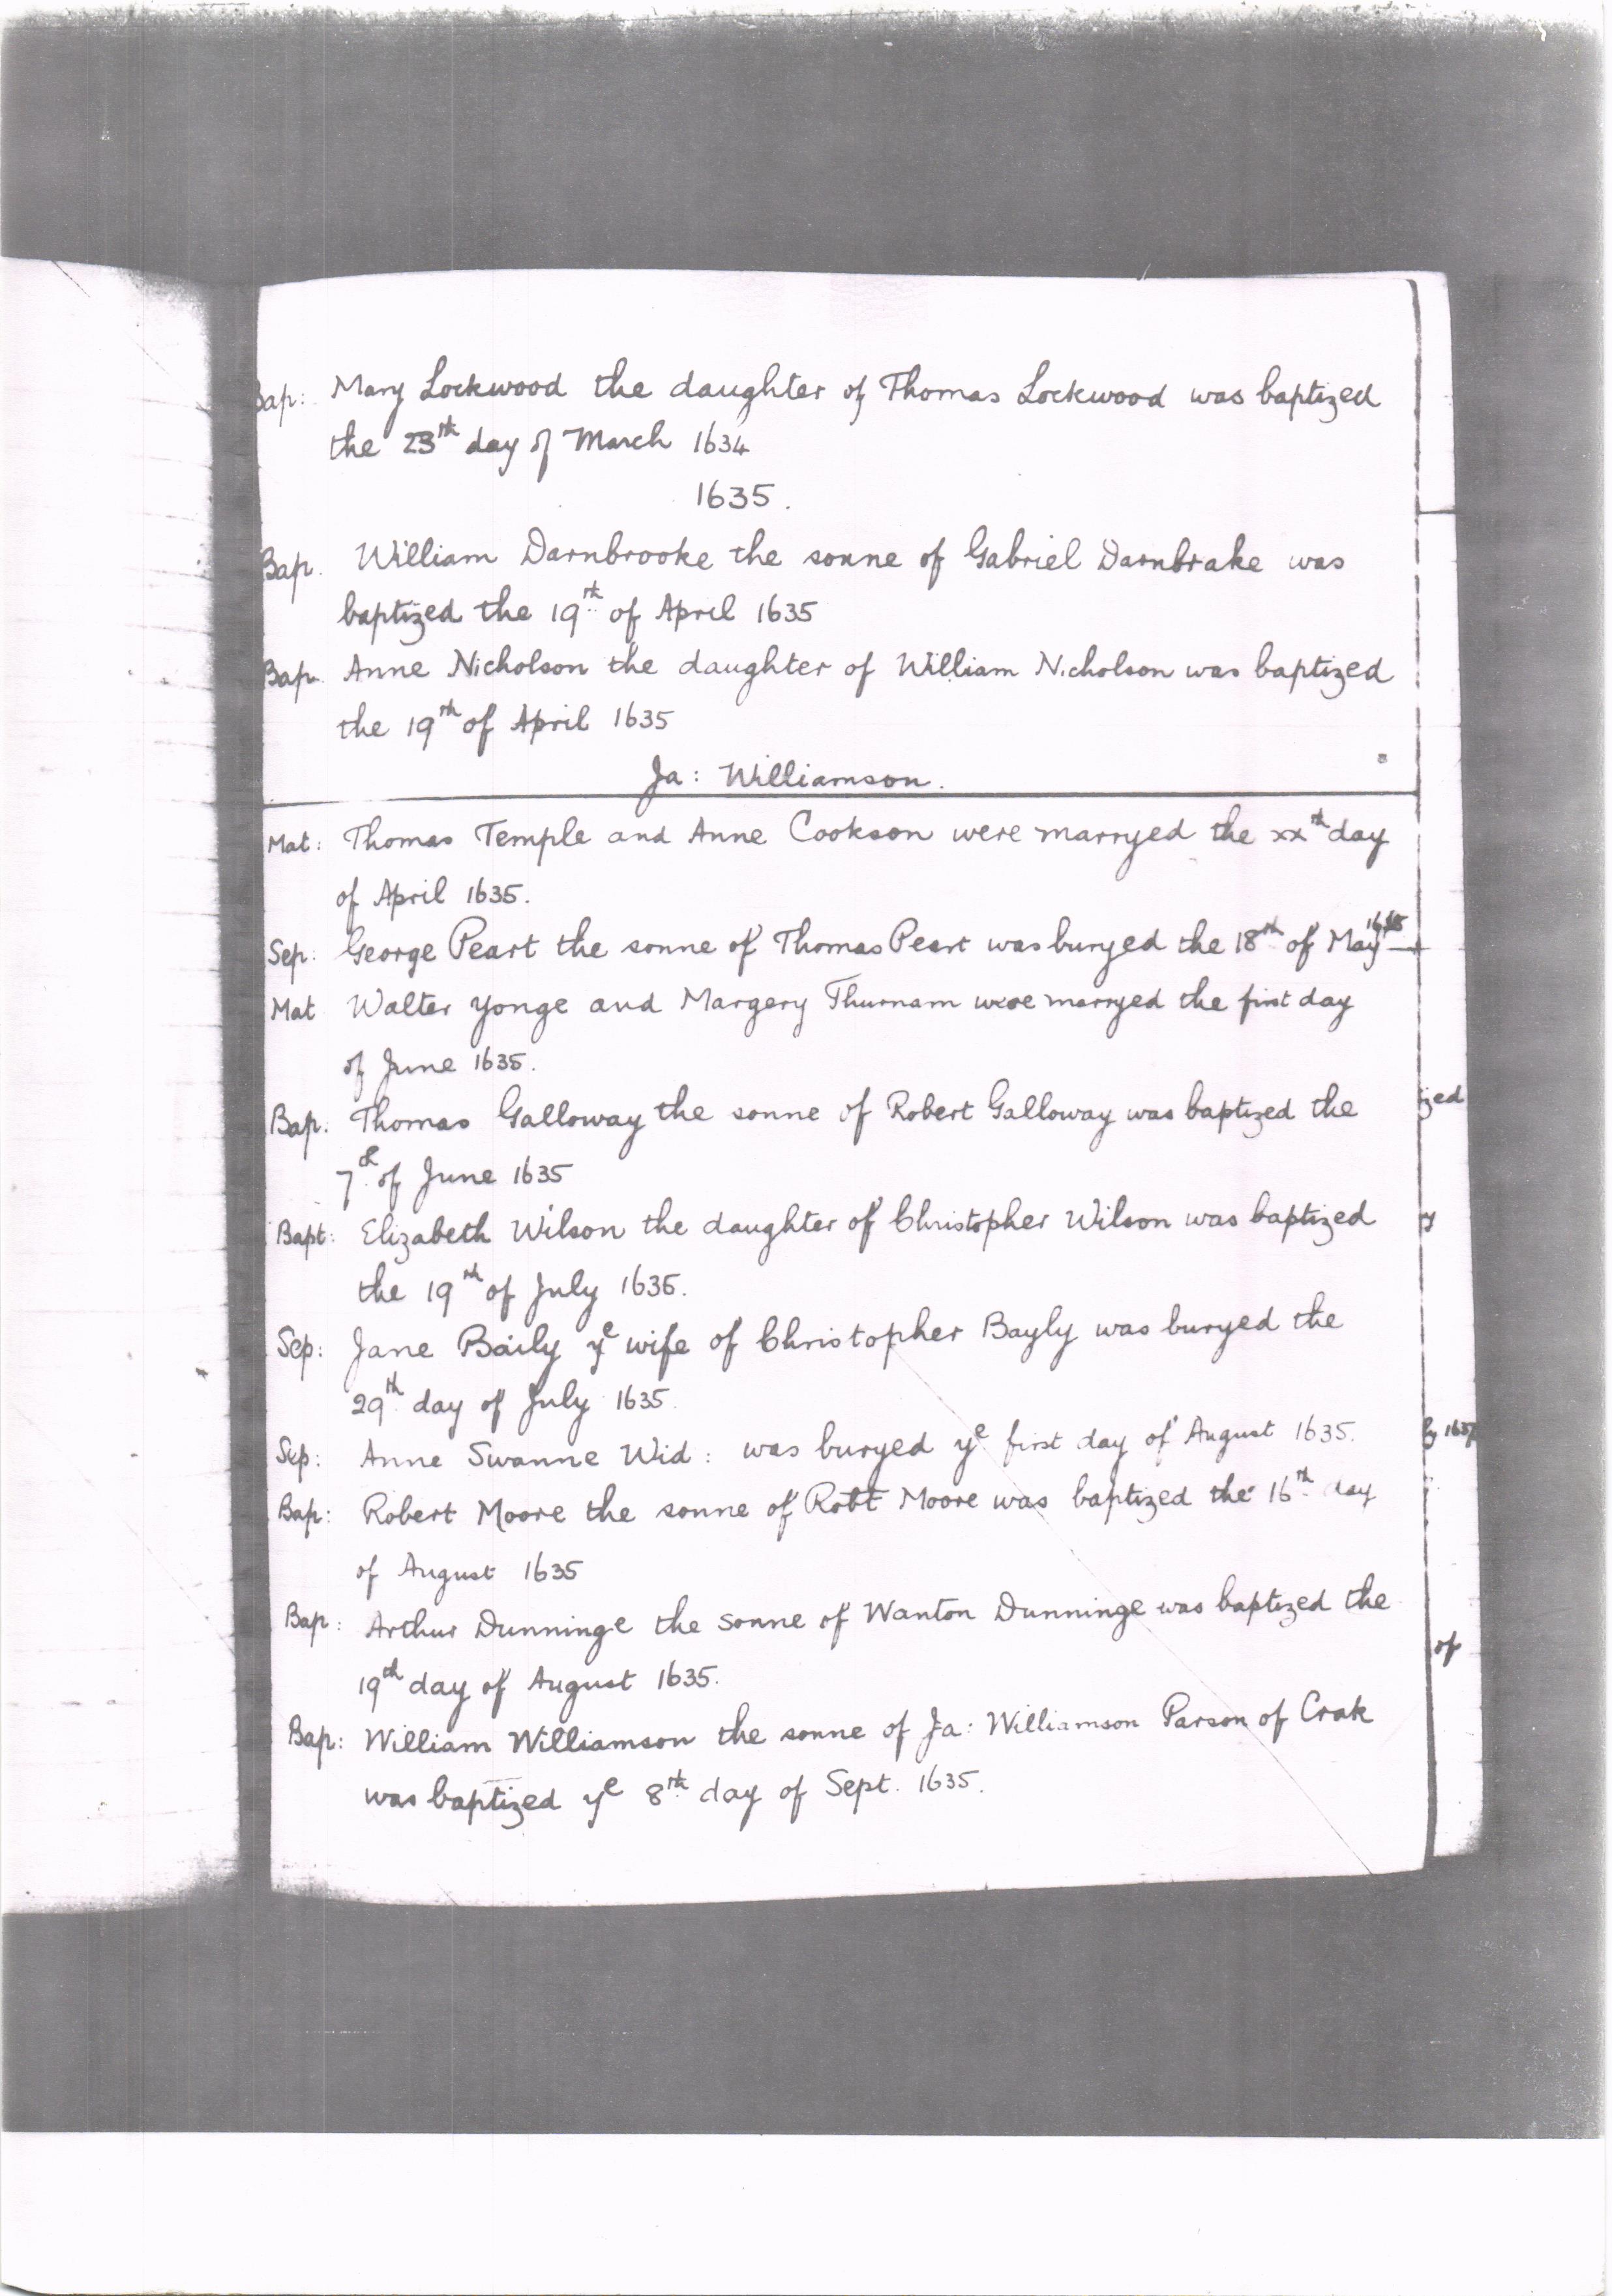 Bap: Mary Lockwood the daughter of Thomas Lockwood was baptized
the 23th day of March 1634
1635.
Bap. William Darnbrooke the sonne of Gabriel Darnbrake was
baptized the 19th of April 1635
Bap. Anne Nicholson the daughter of William Nicholson was baptized
the 19th of April 1635
Ja: Williamson.
Mat: Thomas Temple and Anne Cookson were marryed the xxth day
of April 1635.
Sep: George Peart the sonne of Thomas Peart was buryed the 18th of May 1635
Mat Walter Yonge and Margery Thurnam were marryed the first day
of June 1635.
Bap. Thomas Galloway the sonne of Robert Galloway was baptized the
7th of June 1635
Bapt: Elizabeth Wilson the daughter of Christopher Wilson was baptized
the 19th of July 1635.
Sep: Jane Baily ye wife of Christopher Bayly was buryed the
29th day of July 1635.
Sep: Anne Swanne Wid: was buryed ye first day of August 1635.
Bap: Robert Moore the sonne of Robt Moore was baptized the 16th day
of August 1635
Bap: Arthur Dunninge the sonne of Wanton Dunninge was baptized the
19th day of August 1635.
Bap: William Williamson the sonne of Ja: Williamson Parson of Crak
was baptized ye 8th day of Sept. 1635.
zed
y
of